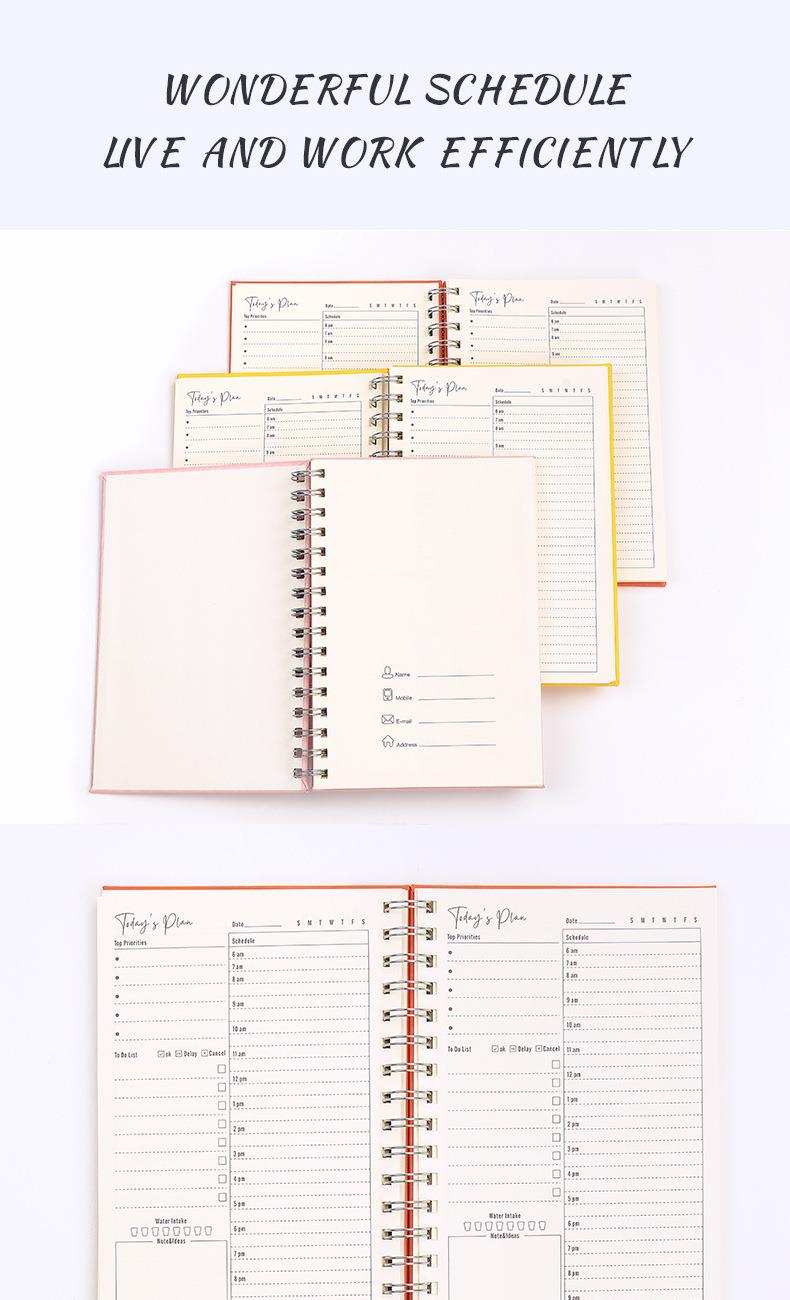 WONDERFUL SCHEDULE
LIVE AND WORK EFFICIENTLY
Today's Plan
Date S M T W T F S
Top Priorities
Schedule
6 am
7 am
8 am
9 am
Today's Plan
Date S M T W T F S
Top Priorities
Schedule
6 am
7 am
8 am
9 am
Today's Plan
Date S M T W T F S
Top Priorities
Schedule
6 am
7 am
8 am
9 am
Today's Plan
Date S M T W T F S
Top Priorities
Schedule
6 am
7 am
8 am
9 am
Name
Mobile
E-mail
Address
Today's Plan
Date S M T W T F S
Top Priorities
Schedule
6 am
7 am
8 am
9 am
10 am
To Do List ok Delay Cancel
11 am
12 pm
1 pm
2 pm
3 pm
4 pm
5 pm
Water Intake
6 pm
Note&Ideas
7 pm
8 pm
Today's Plan
Date S M T W T F S
Top Priorities
Schedule
6 am
7 am
8 am
9 am
10 am
To Do List ok Delay Cancel
11 am
12 pm
1 pm
2 pm
3 pm
4 pm
5 pm
Water Intake
6 pm
Note&Ideas
7 pm
8 pm
9 pm